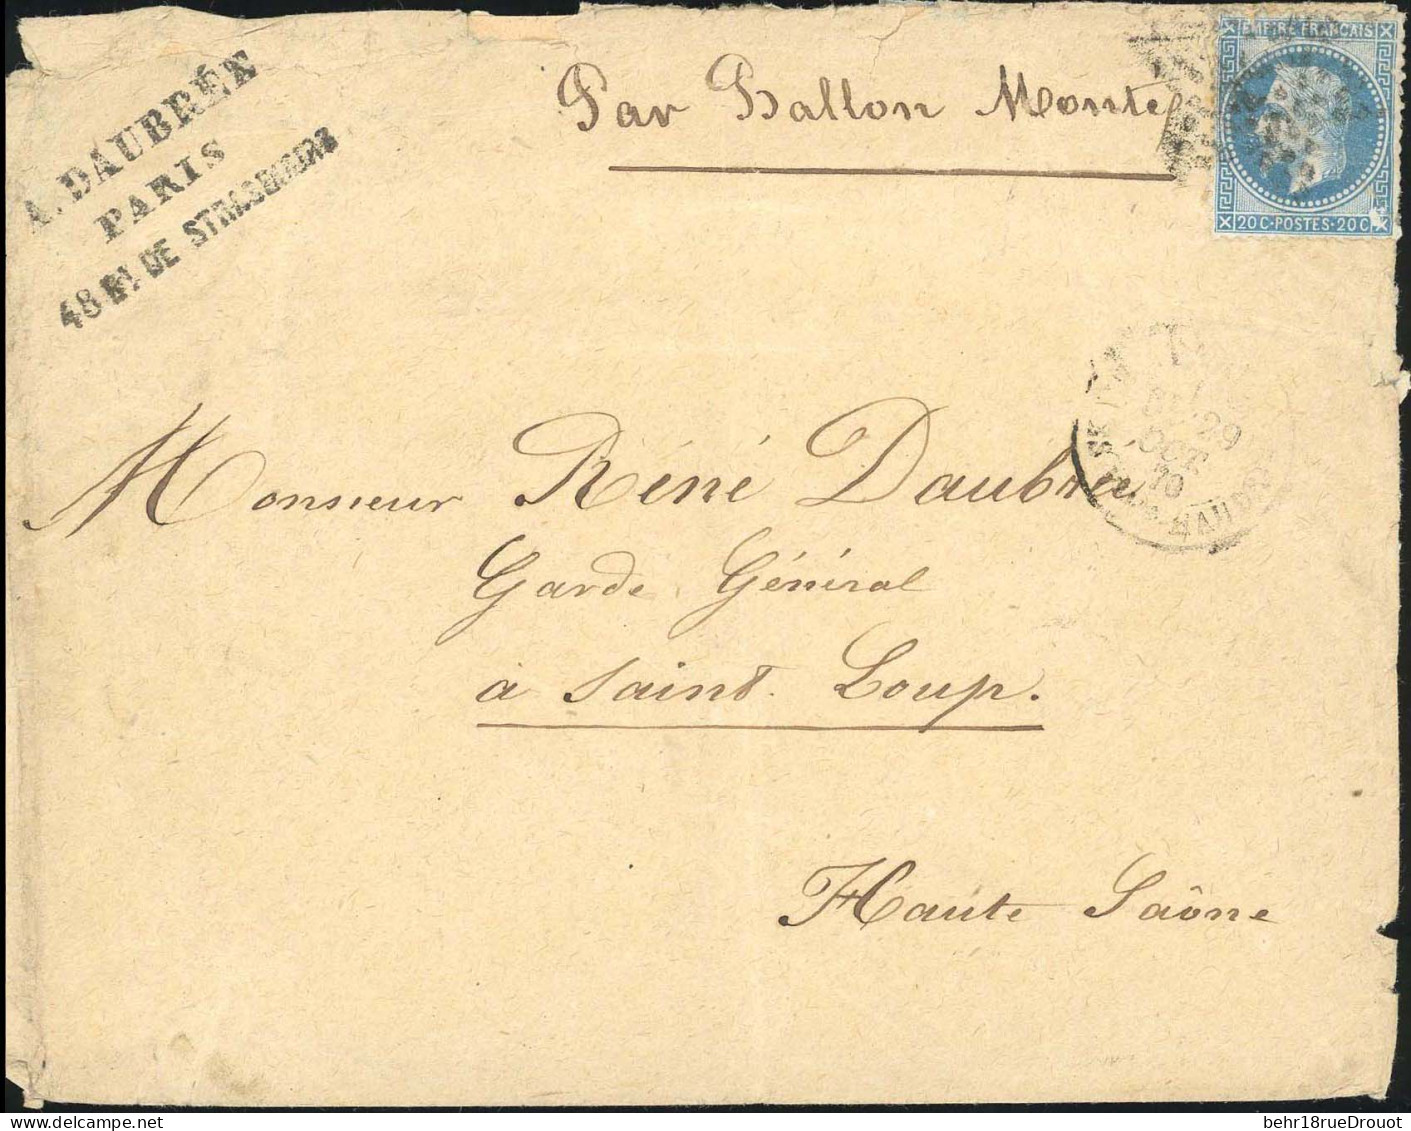 A. DAUBRÉE
PARIS
48 Bd. DE STRASBOURG
Par Ballon Monté
EMPIRE FRANÇAIS
20 C · POSTES · 20 C
29
OCT
70
Monsieur Réné Daubrée
Garde Général
à Saint Loup.
Haute Saône
behr18rueDrouot